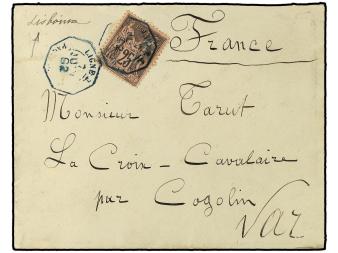 Lisbonne
France
LIGNE
92
25
Monsieur Tarut
La Croix - Cavalaire
par Cogolin
Var